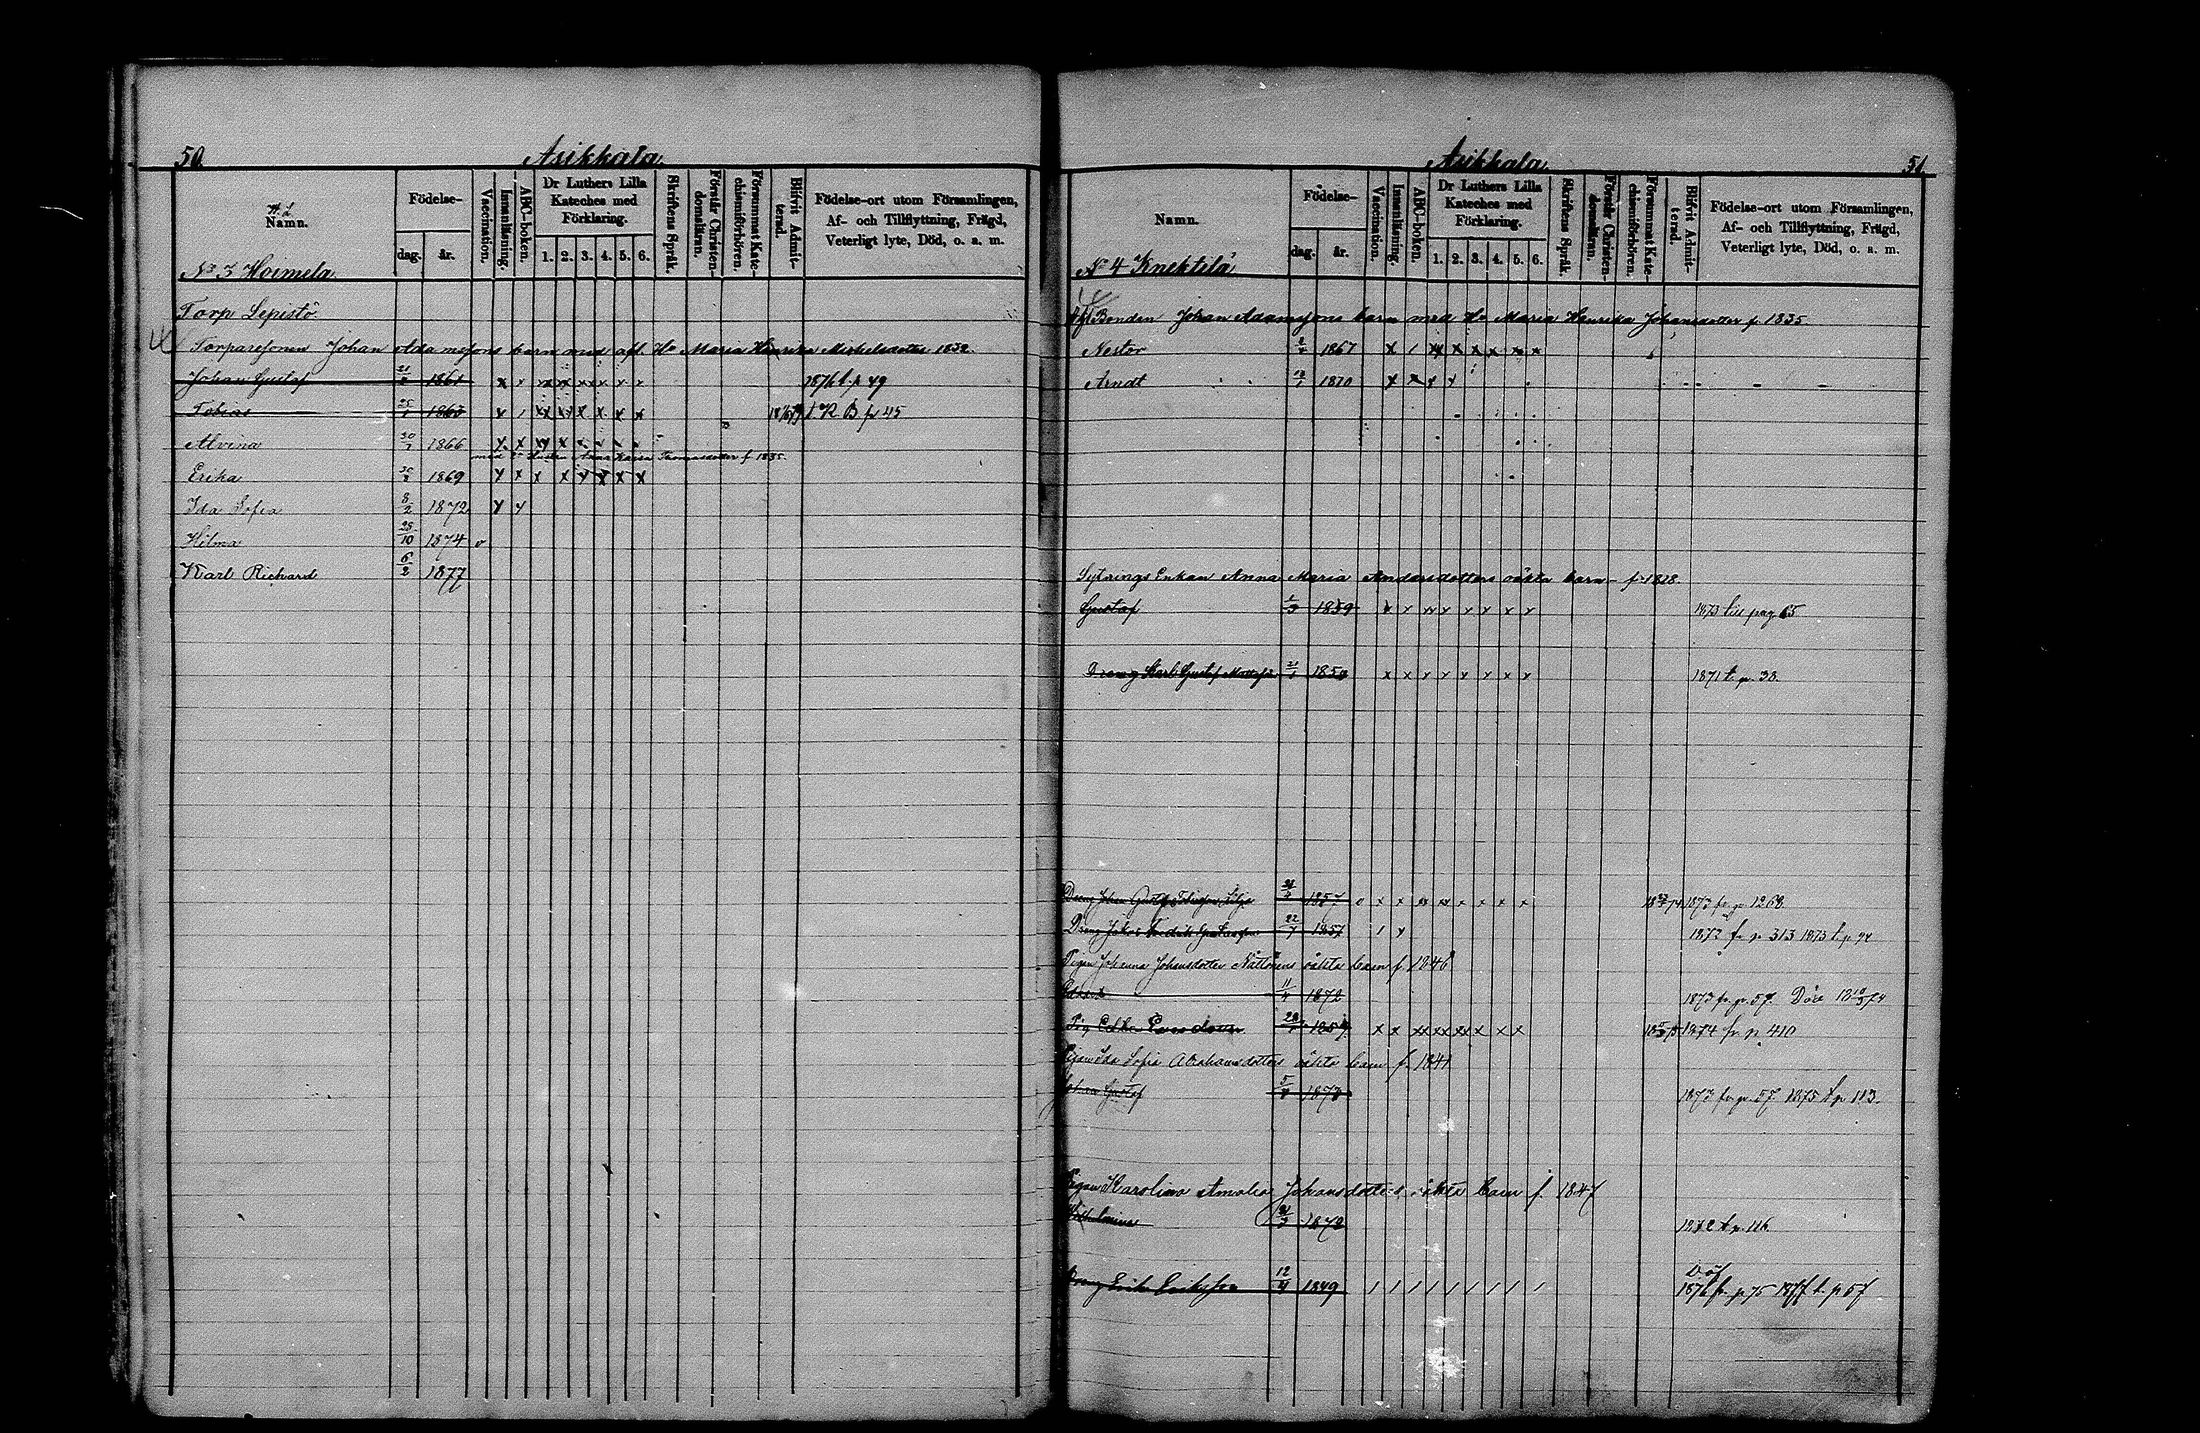 50. Asikkala
Namn.
Födelse-
dag. år.
Vaccination.
Innanläsning.
ABC-boken.
Dr Luthers Lilla Kateches med Förklaring.
1. 2. 3. 4. 5. 6.
Skriftens Språk.
Förstår Christendomsläran.
Försummat Katechismiförhören.
Blifvit Admitterad.
Födelse-ort utom Församlingen, Af- och Tillflyttning, Frägd, Veterligt lyte, Död, o. a. m.
No 3 Hoimela
Torp Lepistö.
Torparesonen Johan Adamssons barn med afl. Ho Maria Henrika Michelsdotter 1832.
Johan Gustaf 1861 x x x x x x x x 1876 t. p 49
Tobias 25/1 1863 x 1 xx xx x x x x K B p 45
Alvina 30/7 1866 x x xx x x
med
Thomasdotter f. 1835.
Erika 1869 x x x x x x x x
Ida Sofia 8/2 1872 x x
Hilma 25/10 1874 o
Karl Richard 6/2 1877
Asikkala 51.
Namn.
Födelse-
dag. år.
Vaccination.
Innanläsning.
ABC-boken.
Dr Luthers Lilla Kateches med Förklaring.
1. 2. 3. 4. 5. 6.
Skriftens Språk.
Förstår Christendomsläran.
Försummat Katechismiförhören.
Blifvit Admitterad.
Födelse-ort utom Församlingen, Af- och Tillflyttning, Frägd, Veterligt lyte, Död, o. a. m.
No 4 Knektilä
Bonden Johan Adamssons barn med Ho Maria Henrika Johansdotter f. 1835.
Nestor 1867 x 1 xx x x x x x
Arndt 1870 x x x x
Sytnings Enkan Anna Maria Andersdotters oäkta barn f. 1828.
Gustaf 1859 x x xx x x x x x 1873 till pag. 65
Dreng Karl Gustaf 1850 x x x x x x x x 1871 t. p. 38.
Dreng Johan Gustaf 1857 o x x xx xx x x x x 1873 fr. p. 1268.
Dreng Jakob Fredrik 22/7 1857 1 x 1872 fr. p. 313 1873 t. p 94
Pigan Johanna Johansdotter oäkta barn f. 1848
11/4 1872 1873 fr. p. 57. Död
Pig 1857 x x xx xx xx x x x 1874 fr. p. 410
Pigan Ida Sofia Abrahamsdotters oäkta barn f. 1841
Johan Gustaf 1873 1873 fr. p. 57. 1875 t p 113.
Pigan Karolina Amalia Johansdotters oäkta barn f. 1847
Vilhelmina 1872 1872 t. p. 116
Dreng Erik Eriksson 12/4 1849 1 1 1 1 1 1 1 1 1 1876 fr. p 75 1877 t. p 57